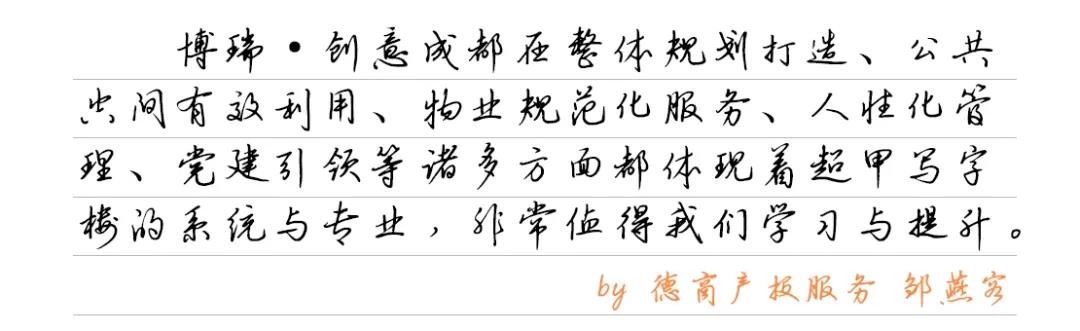 博瑞·创意成都在整体规划打造、公共
空间有效利用、物业规范化服务、人性化管
理、党建引领等诸多方面都体现着超甲写字
楼的系统与专业，非常值得我们学习与提升。
by 德商产投服务 邹燕客